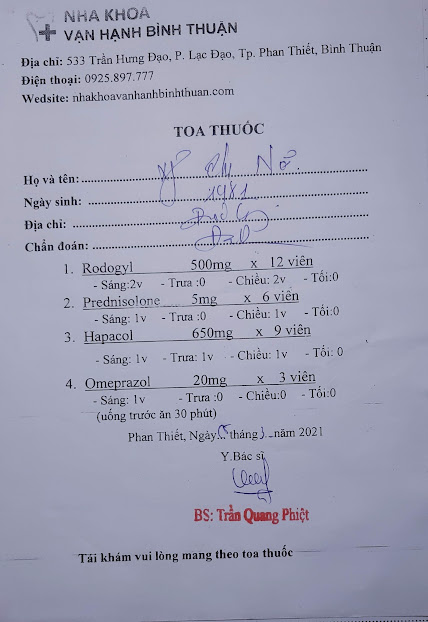 NHA KHOA
VẠN HẠNH BÌNH THUẬN
Địa chỉ: 533 Trần Hưng Đạo, P. Lạc Đạo, Tp. Phan Thiết, Bình Thuận
Điện thoại: 0925.897.777
Wedsite: nhakhoavanhanhbinhthuan.com
TOA THUỐC
Họ và tên:
Ngày sinh: 1981
Địa chỉ:
Chẩn đoán:
1. Rodogyl 500mg x 12 viên
- Sáng:2v - Trưa :0 - Chiều: 2v - Tối:0
2. Prednisolone 5mg x 6 viên
- Sáng: 1v - Trưa :0 - Chiều: 1v - Tối:0
3. Hapacol 650mg x 9 viên
- Sáng: 1v - Trưa: 1v - Chiều: 1v - Tối: 0
4. Omeprazol 20mg x 3 viên
- Sáng: 1v - Trưa :0 - Chiều:0 - Tối:0
(uống trước ăn 30 phút)
Phan Thiết, Ngày tháng 3 năm 2021
Y.Bác sĩ
BS: Trần Quang Phiệt
Tái khám vui lòng mang theo toa thuốc